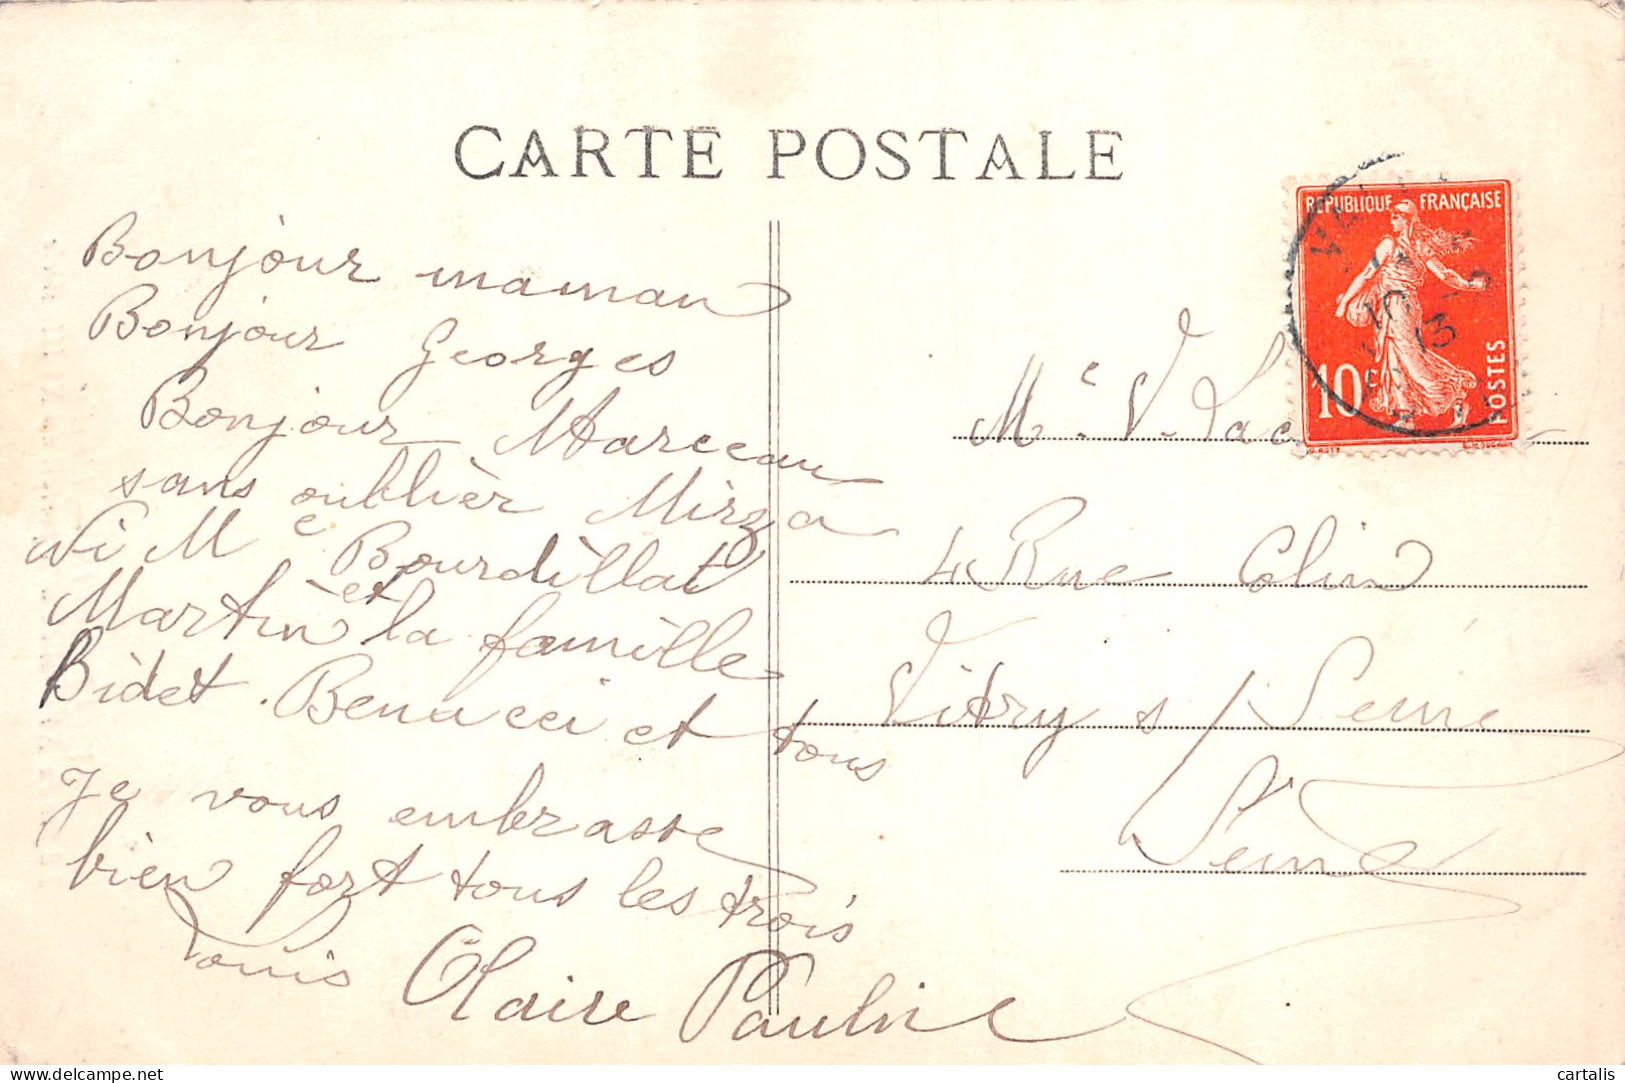 CARTE POSTALE
REPUBLIQUE FRANÇAISE
10c
POSTES
10
13
Bonjour maman
Bonjour Georges
Bonjour Marceau
sans oublier Mirza
ni Me Bourdillat
Martin et la famille
Bidet. Benacci et tous
Je vous embrasse
bien fort tous les trois
Louis Claire Pauline
Me V.
4 Rue Colin
Vitry s/ Seine
Seine
www.delcampe.net
cartalis